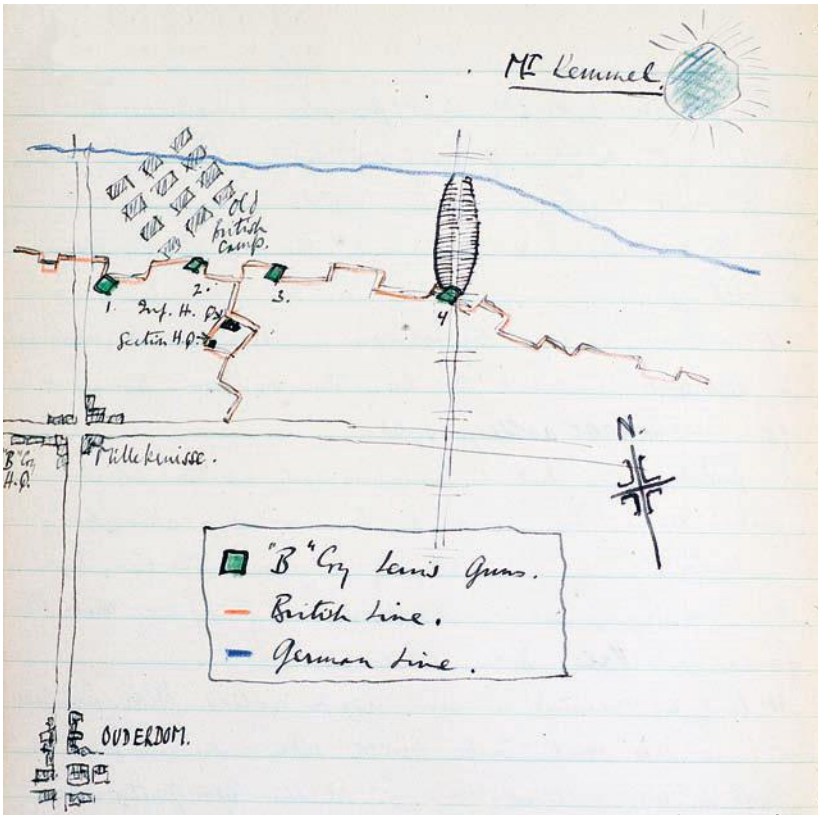 Mt Kemmel.
Old
British
Camp.
1.
2.
3.
4
Inf. H. Q.
Section H.Q.
"B" Coy
H.Q.
Millekruisse.
N.
"B" Coy Lewis Guns.
British Line.
German Line.
OUDERDOM.